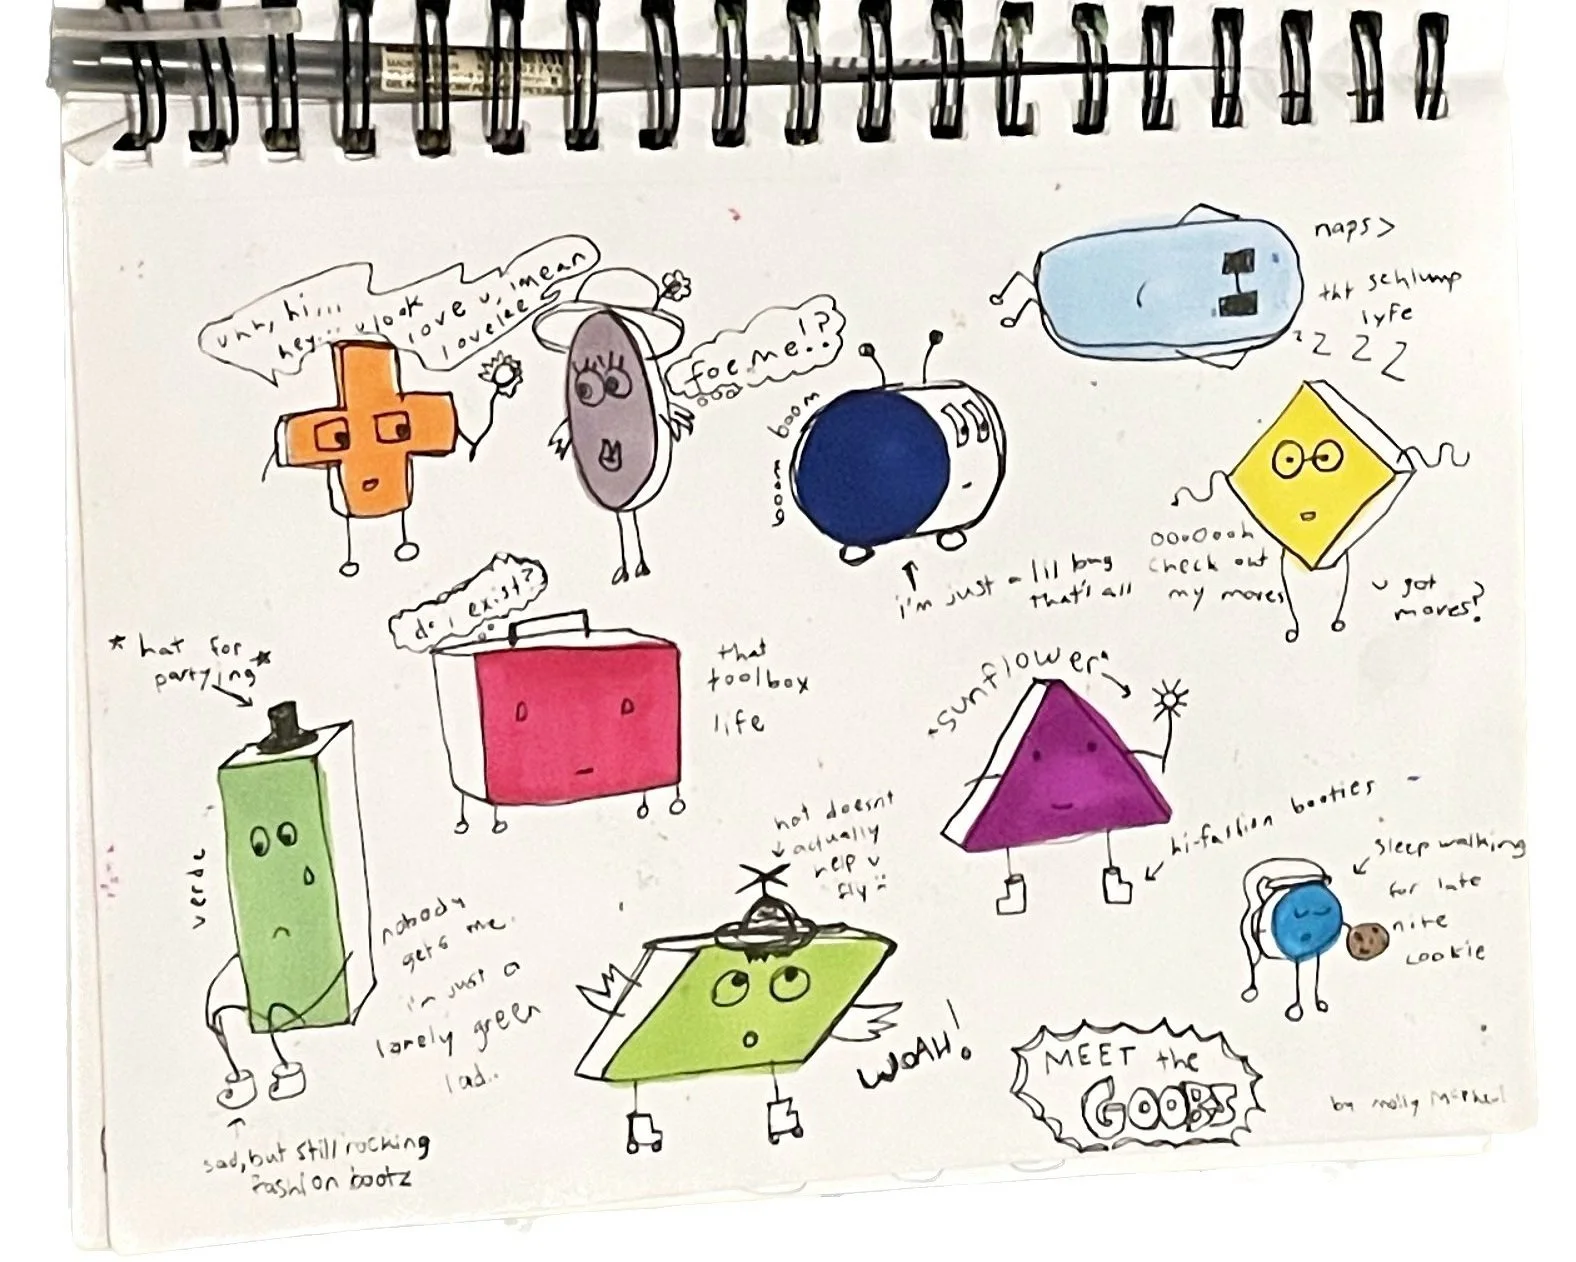 uhh, hi...
hey... u look
love u, i mean
lovelee
foe me!?
naps >
tht schlump
lyfe
z z z z
boom
boom
i'm just a lil bug
that's all
ooo0ooh
check out
my moves
u got
moves?
do i exist?
that
toolbox
life
*hat for
partying*
verde
nobody
gets me.
i'm just a
lonely green
lad..
sad, but still rocking
fashion bootz
hat doesnt
actually
help u
fly
WOAH!
*sunflower*
hi-fashion booties
sleep walking
for late
nite
cookie
MEET the
GOOBS
by molly